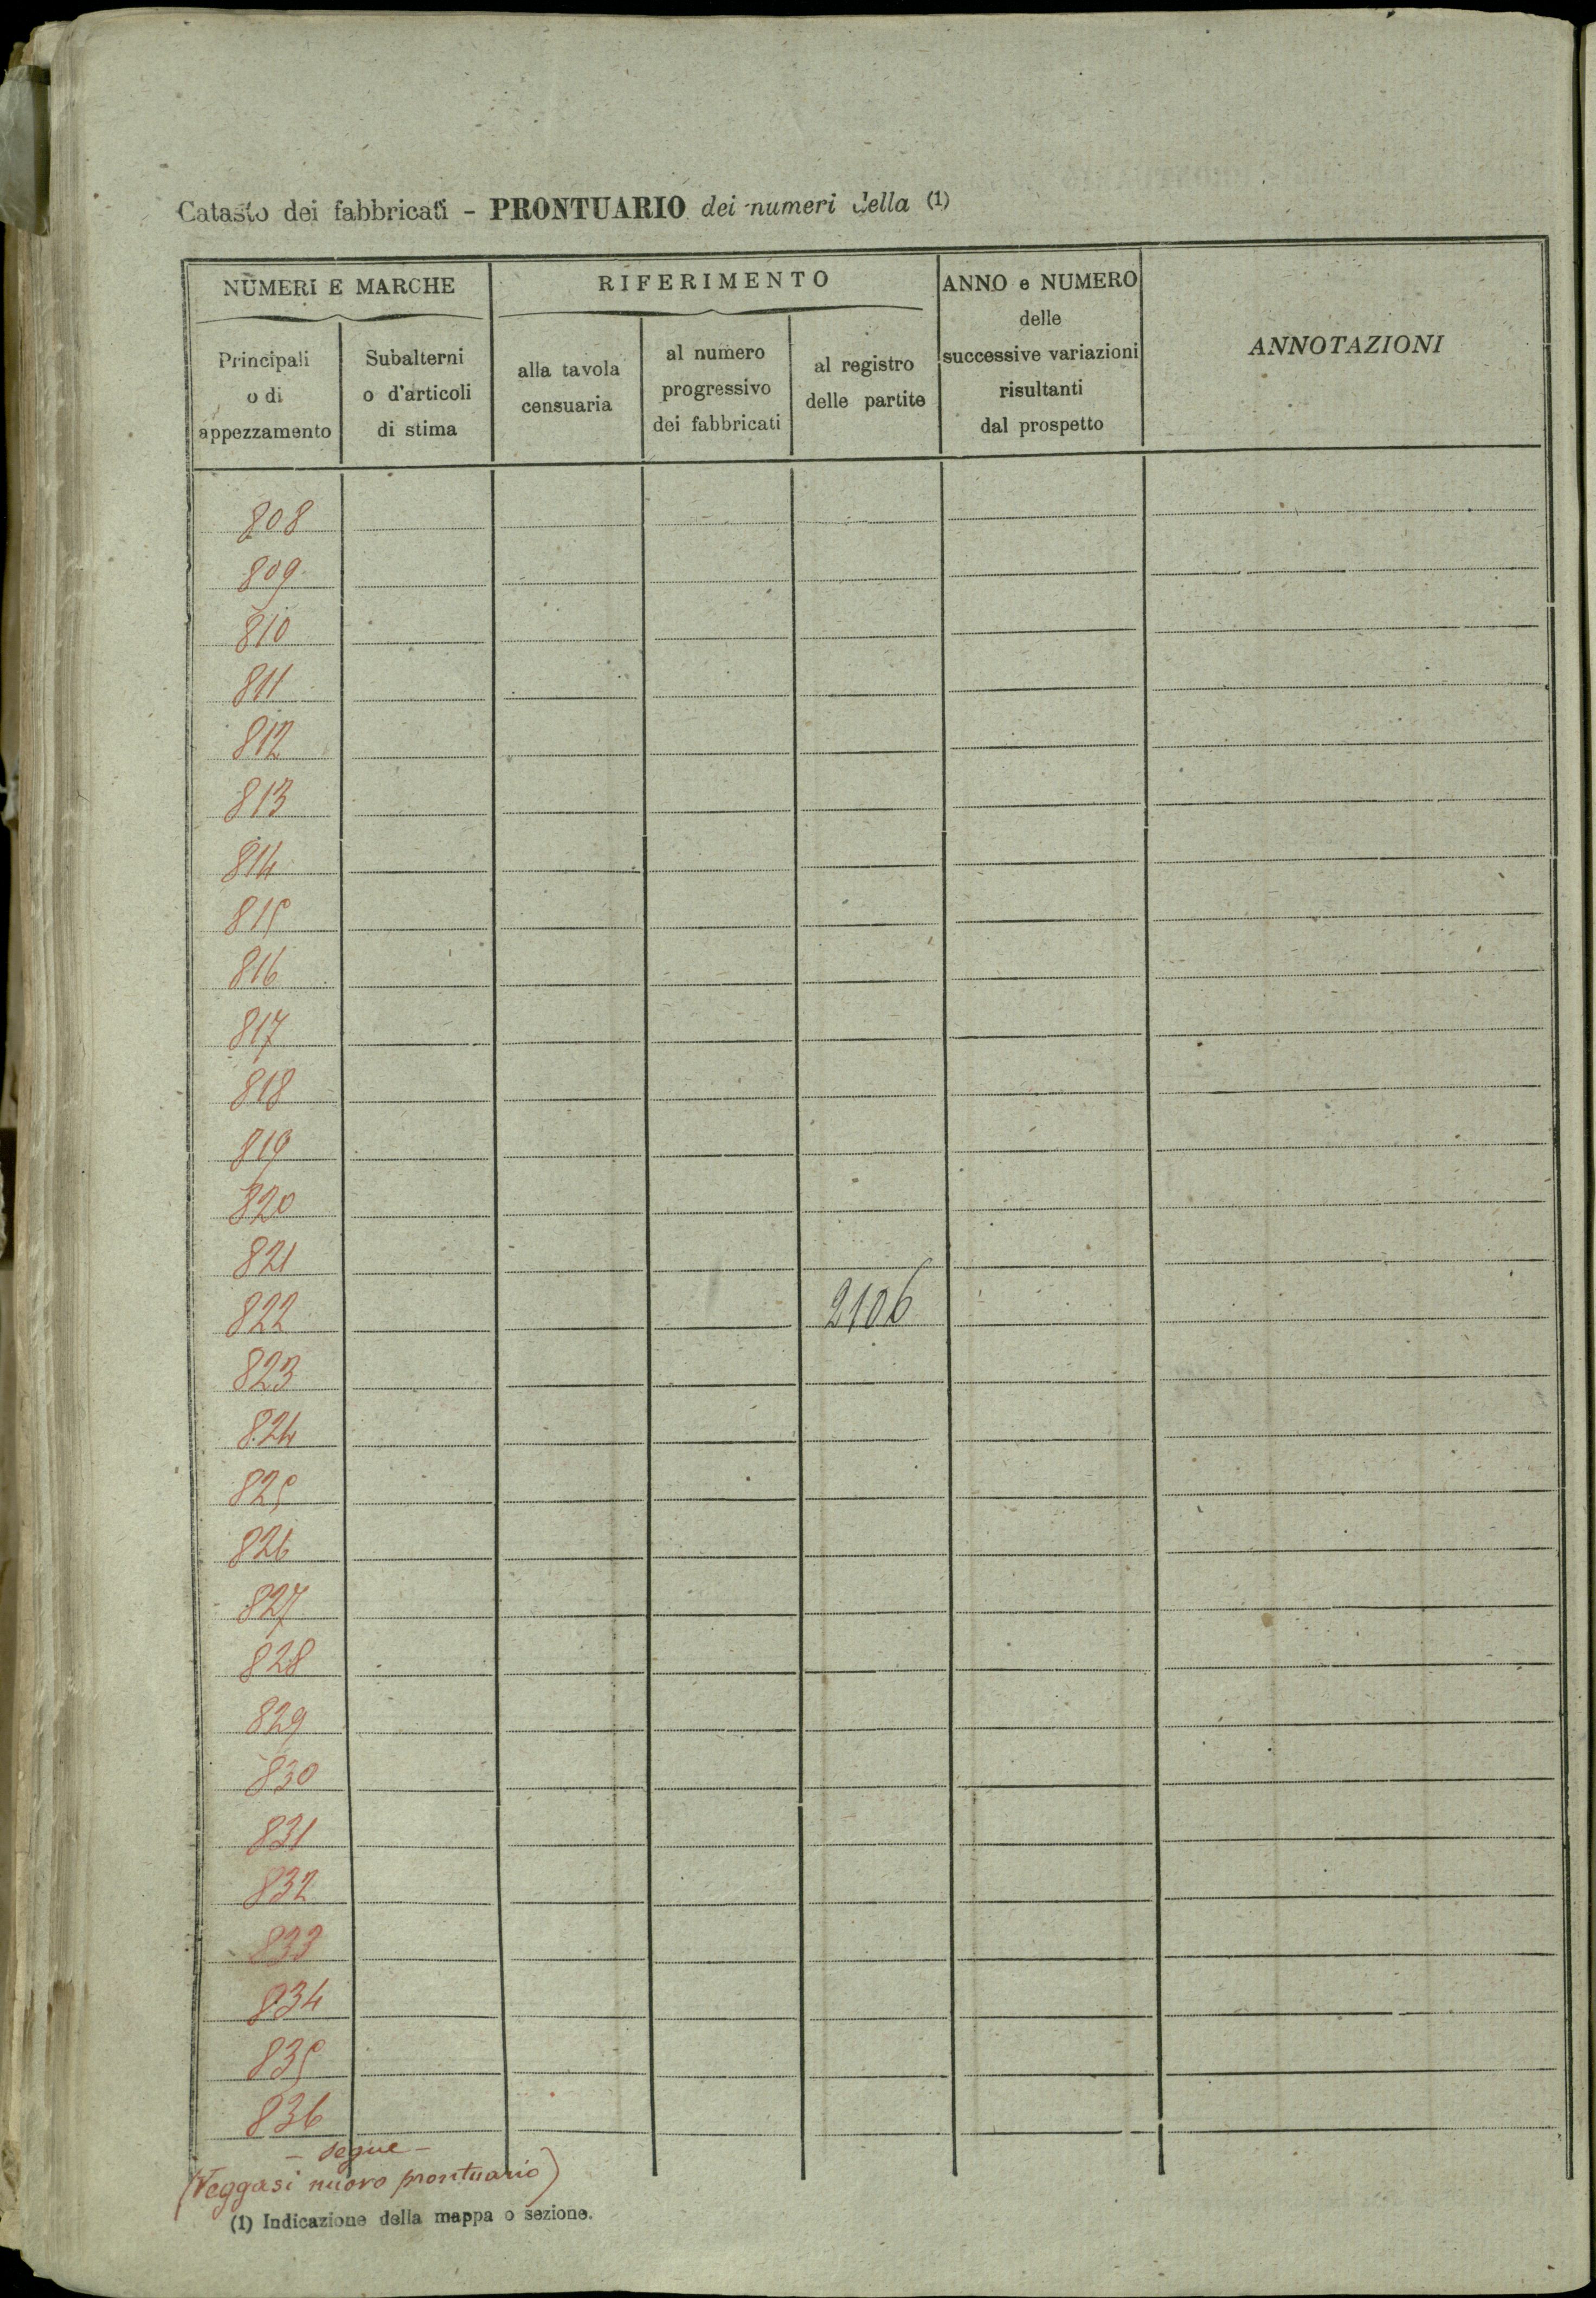 Catasto dei fabbricati - PRONTUARIO dei numeri della (1)
NUMERI E MARCHE
RIFERIMENTO
ANNO e NUMERO
delle
successive variazioni
risultanti
dal prospetto
ANNOTAZIONI
Principali
o di
appezzamento
Subalterni
o d'articoli
di stima
alla tavola
censuaria
al numero
progressivo
dei fabbricati
al registro
delle partite
808
809
810
811
812
813
814
815
816
817
818
819
820
821
822 2106
823
824
825
826
827
828
829
830
831
832
833
834
835
836
- segue -
(Veggasi nuovo prontuario)
(1) Indicazione della mappa o sezione.